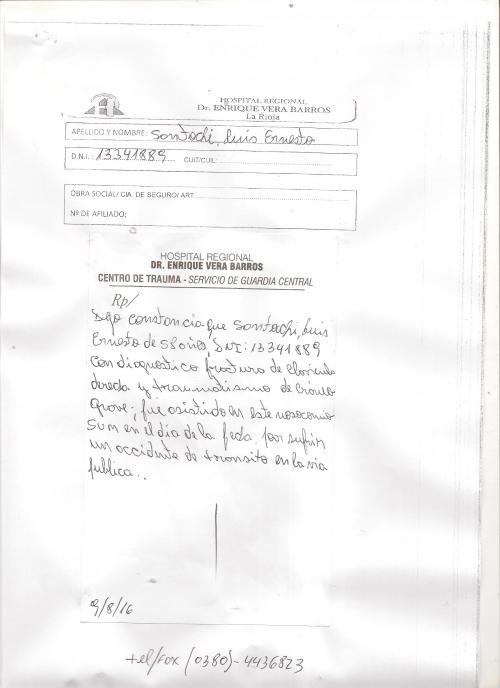 HOSPITAL REGIONAL
Dr. ENRIQUE VERA BARROS
La Rioja
APELLIDO Y NOMBRE: Santochi, Luis Ernesto
D.N.I.: 13341889 CUIT/CUIL:
OBRA SOCIAL/ CIA. DE SEGURO/ ART
Nº DE AFILIADO:
HOSPITAL REGIONAL
DR. ENRIQUE VERA BARROS
CENTRO DE TRAUMA - SERVICIO DE GUARDIA CENTRAL
Rp/
Dejo constancia que Santochi, Luis
Ernesto de 58 años, DNI: 13341889
Con diagnostico fractura de Clavicula
derecha y traumatismo de Cráneo
Grave; fue asistido en este nosocomio
en el día de la fecha por sufrir
un accidente de transito en la via
publica..
9/8/16
tel/fax (0380)-4436823